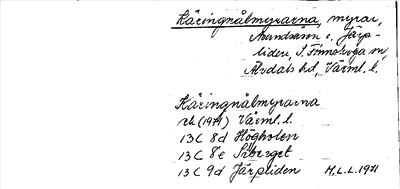 Käringnålmyrarna, myrar,
Avundsåsen o. Järp-
liden, S. Finnskoga sn,
Älvdals hd, Värml. l.
Käringnålmyrarna
rk (1971) Värml. l.
13C 8d Högholen
13C 8e Sitberget
13C 9d Järpliden H.L.L. 1971